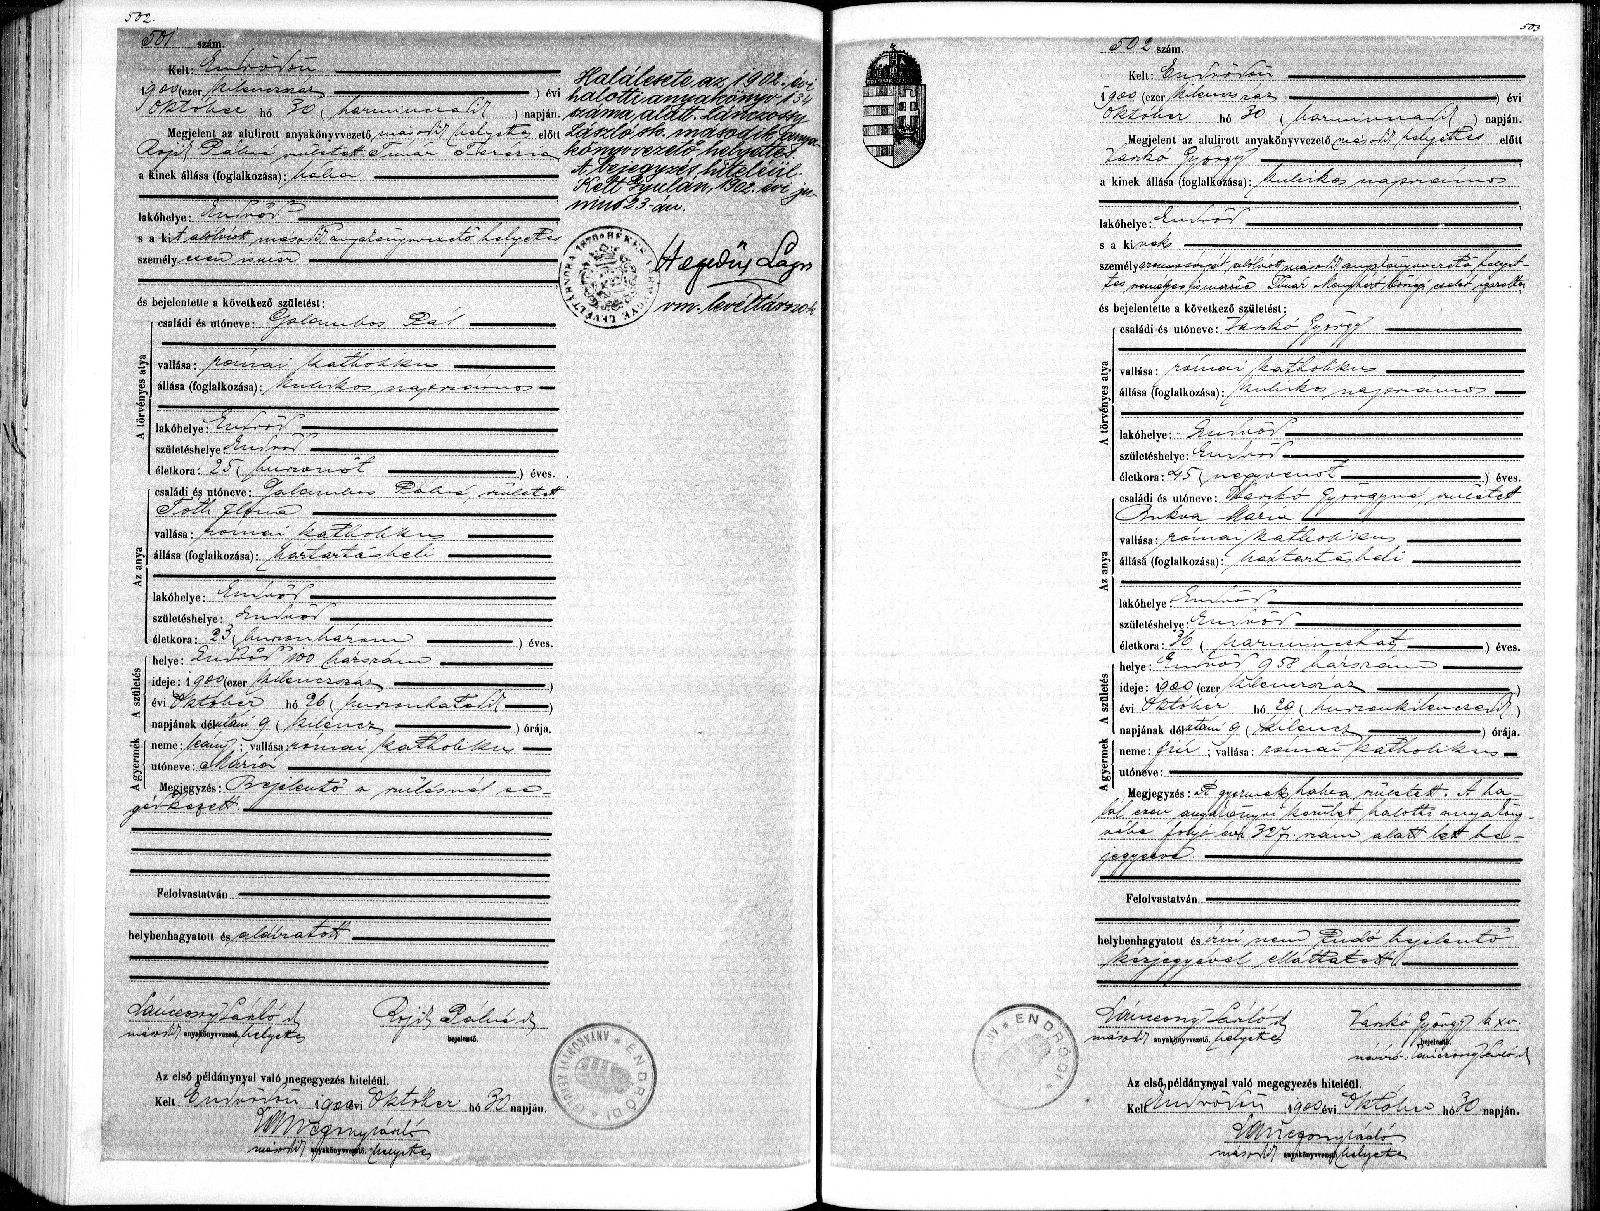 502.
501 szám.
Kelt: Endrődön
1900 (ezer kilenczszáz ) évi
Október hó 30 ( harminczadik ) napján.
Megjelent az alulirott anyakönyvvezető második helyettes előtt
Pálné született Tímár Terézia
a kinek állása (foglalkozása): bába
lakóhelye: Endrőd
s a kit alólirott második anyakönyvvezető helyettes
személyesen ismer
és bejelentette a következő születést:
A törvényes atya
családi és utóneve: Galambos Pál
vallása: római katholikus
állása (foglalkozása): kubikos napszámos
lakóhelye: Endrőd
születéshelye Endrőd
életkora: 25 ( huszonöt ) éves.
Az anya
családi és utóneve: Galambos Pálné, született
Tóth Ilona
vallása: római katholikus
állása (foglalkozása): háztartásbeli
lakóhelye: Endrőd
születéshelye: Endrőd
életkora: 23 ( huszonhárom ) éves.
A születés
helye: Endrőd 100 házszám
ideje: 1900 (ezer kilenczszáz )
évi Október hó 26 ( huszonhatodik )
napjának délutáni 9 ( kilencz ) órája.
A gyermek
neme: leány; vallása: római katholikus
utóneve: Mária
Megjegyzés: Bejelentő a szülésnél se-
gédkezett
Felolvastatván
helybenhagyatott és aláiratott
Lánczonyi László sk
második anyakönyvvezető. helyettes
Pálné sk
bejelentő.
Az első példánynyal való megegyezés hiteléül.
Kelt Endrődön 1900 évi Október hó 30 napján.
Lánczonyi László
második anyakönyvvezető. helyettes
Halálesete az 1902. évi
halotti anyakönyv 134
száma alatt. Lánczonyi
László sk. második anya-
könyvvezető helyettes.
A bejegyzés hiteléül.
Kelt Gyulán, 1902. évi ju-
nius 23-án.
Hegedüs Lajos
vm. levéltárnok
ENDRŐDI
503
502 szám.
Kelt: Endrődön
1900 (ezer kilenczszáz ) évi
Október hó 30 ( harminczadik ) napján.
Megjelent az alulirott anyakönyvvezető második helyettes előtt
Varkó György
a kinek állása (foglalkozása): kubikos napszámos
lakóhelye: Endrőd
s a kinek
személyazonosságát alólirott második anyakönyvvezető helyet-
tes személyes ismerőse Tímár igazolta
és bejelentette a következő születést:
A törvényes atya
családi és utóneve: Varkó György
vallása: római katholikus
állása (foglalkozása): kubikos napszámos
lakóhelye: Endrőd
születéshelye: Endrőd
életkora: 45 ( negyvenöt ) éves.
Az anya
családi és utóneve: Varkó Györgyné, született
Bukva Mária
vallása: római katholikus
állása (foglalkozása): háztartásbeli
lakóhelye: Endrőd
születéshelye: Endrőd
életkora: 36 ( harminczhat ) éves.
A születés
helye: Endrőd 958 házszám
ideje: 1900 (ezer kilenczszáz )
évi Október hó 29 ( huszonkilenczedik )
napjának délutáni 9 ( kilencz ) órája.
A gyermek
neme: fiú; vallása: római katholikus
utóneve:
Megjegyzés: A gyermek halva született. A ha-
lál ezen anyakönyvi kerület halotti anyaköny-
vébe folyó évi 327. szám alatt lett be-
jegyezve
Felolvastatván
helybenhagyatott és írni nem tudó bejelentő
kézjegyével elláttatott
Lánczonyi László sk
második anyakönyvvezető. helyettes
Varkó György k. xv.
bejelentő.
névíró: Lánczonyi László sk
Az első példánynyal való megegyezés hiteléül.
Kelt Endrődön 1900 évi Október hó 30 napján.
Lánczonyi László
második anyakönyvvezető helyettes
ENDRŐDI